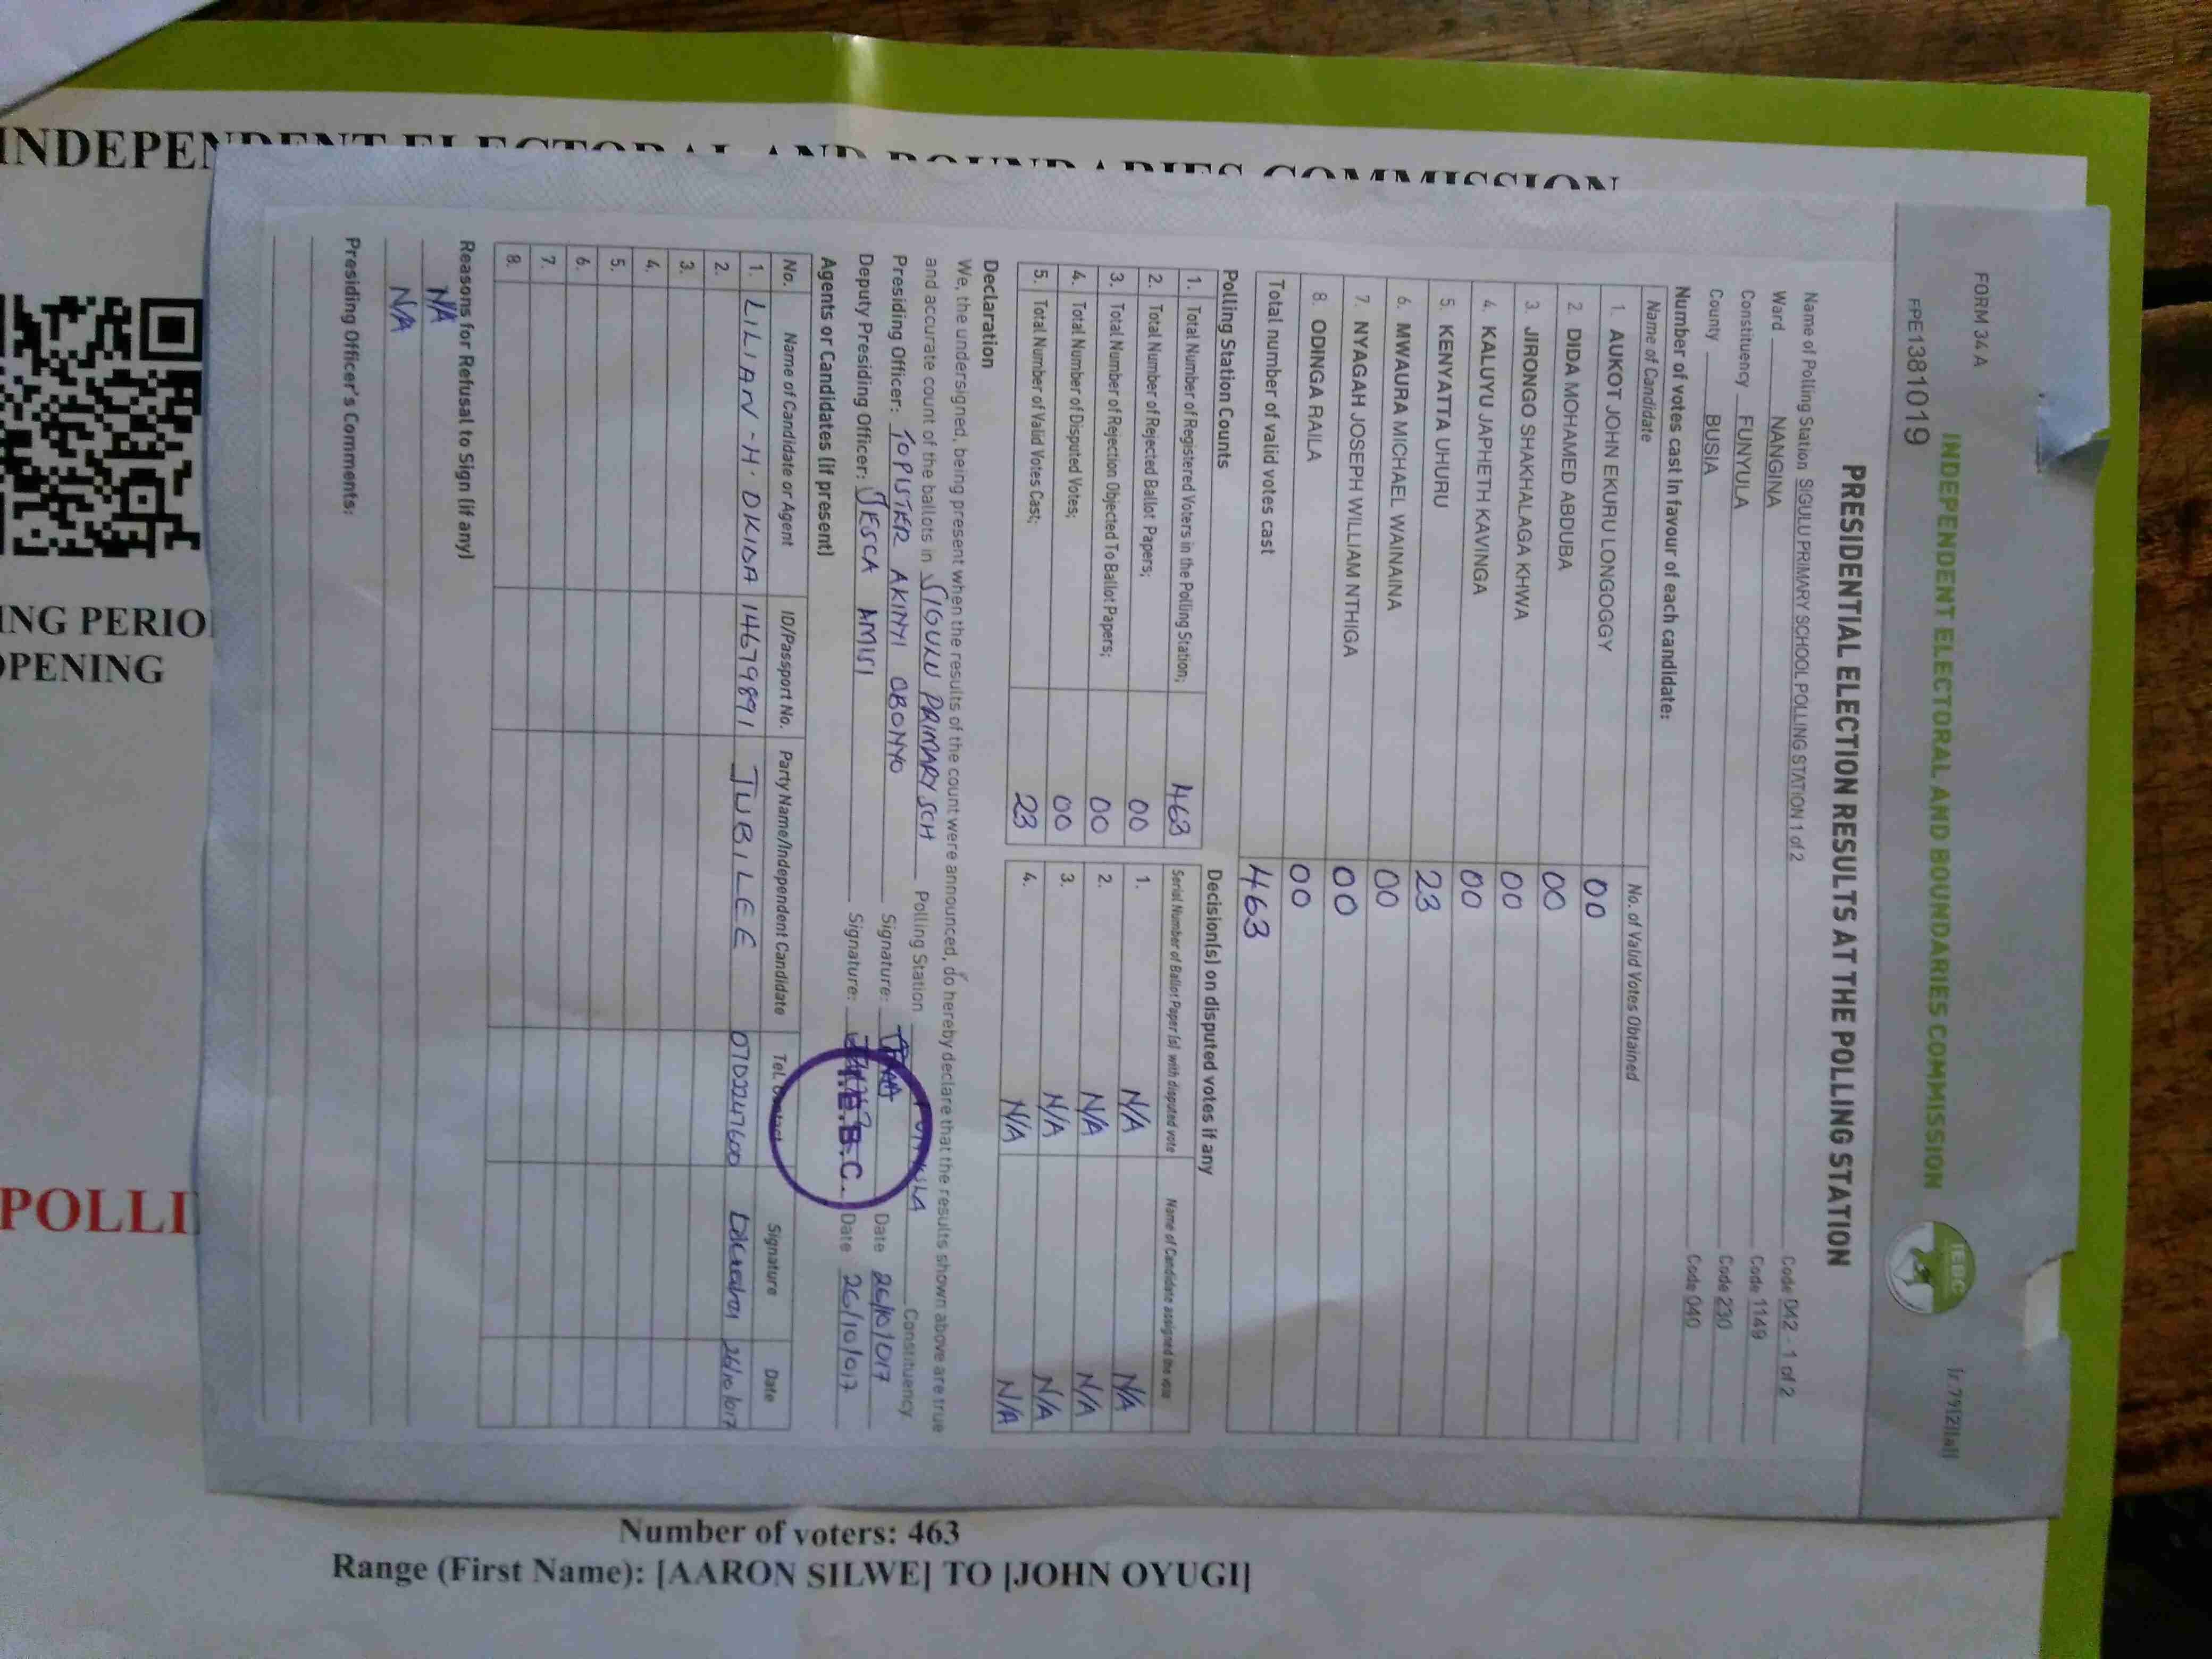 FORM 34A
Ir.79(2)(a)
INDEPENDENT ELECTORAL AND BOUNDARIES COMMISSION
IEBC
FPE1381019
PRESIDENTIAL ELECTION RESULTS AT THE POLLING STATION
Name of Polling Station SIGULU PRIMARY SCHOOL POLLING STATION 1 of 2 Code 042 - 1 of 2
Ward NANGINA Code 1149
Constituency FUNYULA Code 230
County BUSIA Code 040
Number of votes cast in favour of each candidate:
Name of Candidate No. of Valid Votes Obtained
1. AUKOT JOHN EKURU LONGOGGY 00
2. DIDA MOHAMED ABDUBA 00
3. JIRONGO SHAKHALAGA KHWA 00
4. KALUYU JAPHETH KAVINGA 00
5. KENYATTA UHURU 23
6. MWAURA MICHAEL WAINAINA 00
7. NYAGAH JOSEPH WILLIAM NTHIGA 00
8. ODINGA RAILA 00
Total number of valid votes cast 463
Polling Station Counts
1. Total Number of Registered Voters in the Polling Station; 463
2. Total Number of Rejected Ballot Papers; 00
3. Total Number of Rejection Objected To Ballot Papers; 00
4. Total Number of Disputed Votes; 00
5. Total Number of Valid Votes Cast; 23
Decision(s) on disputed votes if any
Serial Number of Ballot Paper (s) with disputed vote Name of Candidate assigned the vote
1. N/A N/A
2. N/A N/A
3. N/A N/A
4. N/A N/A
Declaration
We, the undersigned, being present when the results of the count were announced, do hereby declare that the results shown above are true
and accurate count of the ballots in SIGULU PRIMARY SCH Polling Station Constituency
Presiding Officer: TOPISTER AKINYI OBONYO Signature: Date 26/10/017
Deputy Presiding Officer: JESCA AMISI Signature: Date 26/10/017
I.E.B.C.
Agents or Candidates (if present)
No. Name of Candidate or Agent ID/Passport No. Party Name/Independent Candidate Tel. Contact Signature Date
1. LILIAN - H. OKIDA 14679891 JUBILEE 0702247600 26/10/017
2.
3.
4.
5.
6.
7.
8.
Reasons for Refusal to Sign (if any)
N/A
N/A
Presiding Officer's Comments:
INDEPENDENT ELECTORAL AND BOUNDARIES COMMISSION
ING PERIO
OPENING
POLLI
Number of voters: 463
Range (First Name): [AARON SILWE] TO [JOHN OYUGI]